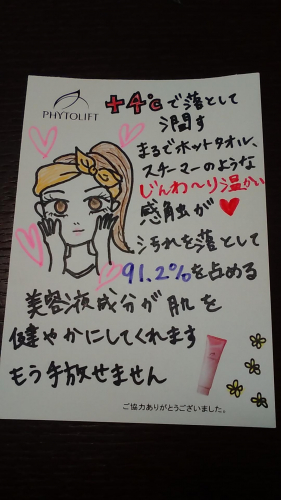 PHYTOLIFT
+4℃で落として
潤す
まるでホットタオル、
スチーマーのような
じんわ〜り温かい
感触が
汚れを落として
91.2%を占める
美容液成分が肌を
健やかにしてくれます
もう手放せません
ご協力ありがとうございました。